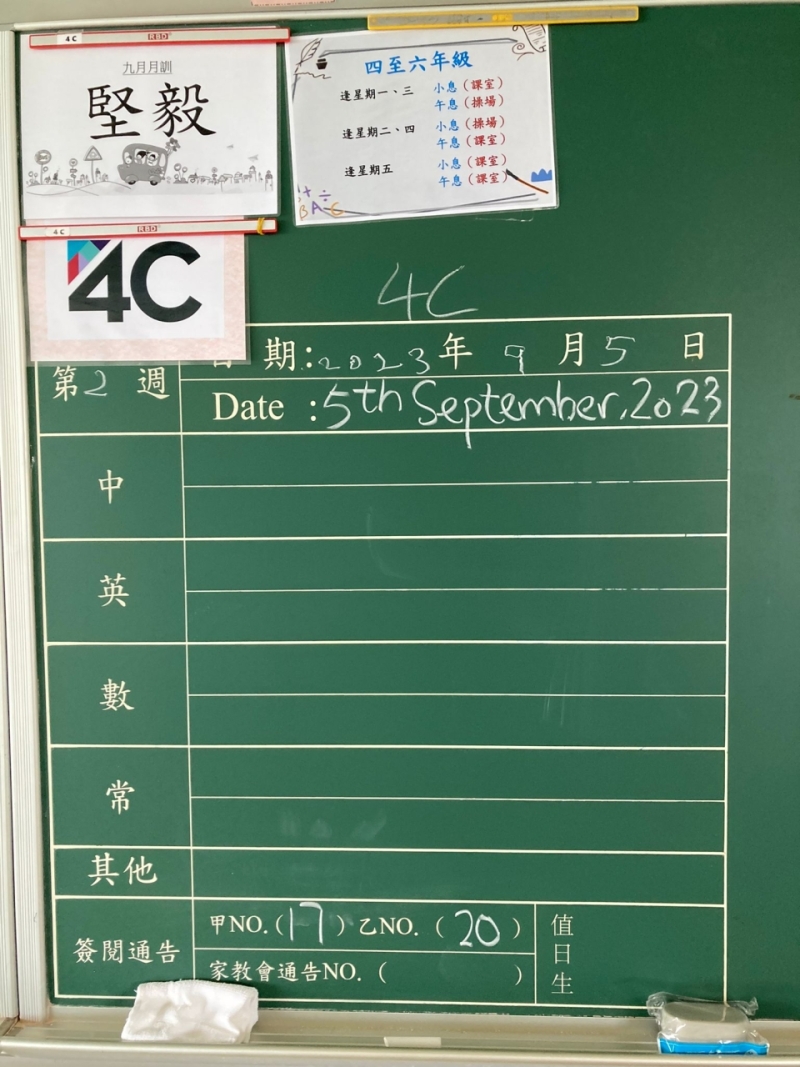 4C RBD
九月月訓
堅毅
四至六年級
逢星期一、三 小息（課室）
午息（操場）
逢星期二、四 小息（操場）
午息（課室）
逢星期五 小息（課室）
午息（課室）
B A C
4C RBD
4C
4C
第2週
日 期：2023年 9月5日
Date ：5th September, 2023
中
英
數
常
其他
簽閱通告
甲NO.（17）乙NO.（20）
家教會通告NO.（ ）
值日生